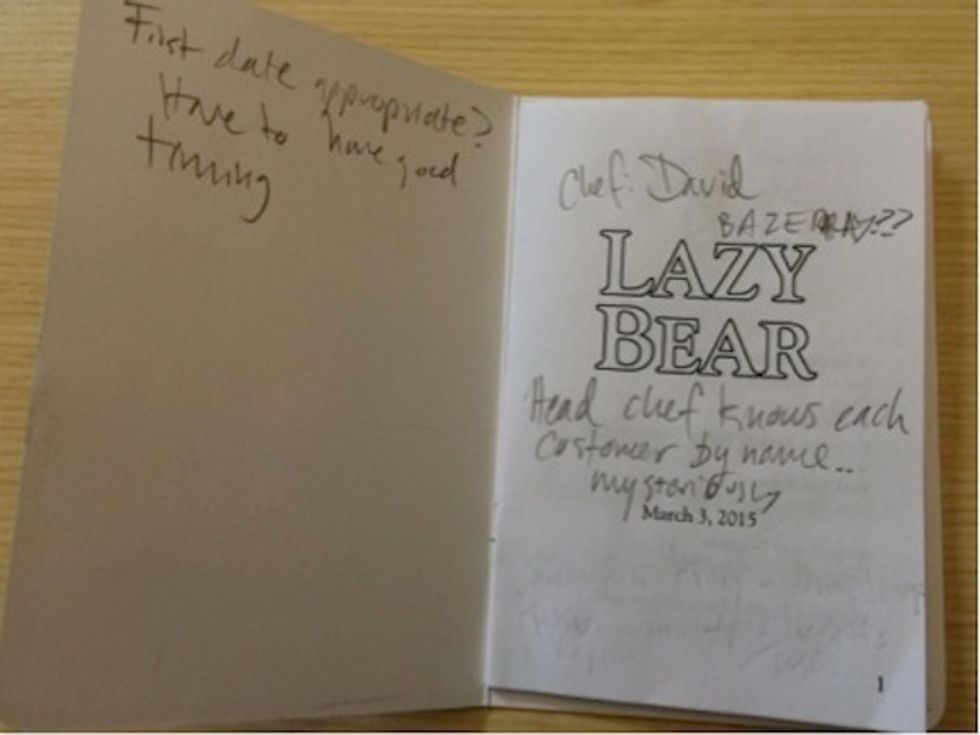 First date appropriate?
Have to have good
timing
Chef: David
LAZY
BEAR
Head chef knows each
customer by name..
mysteriously
March 3, 2015
1